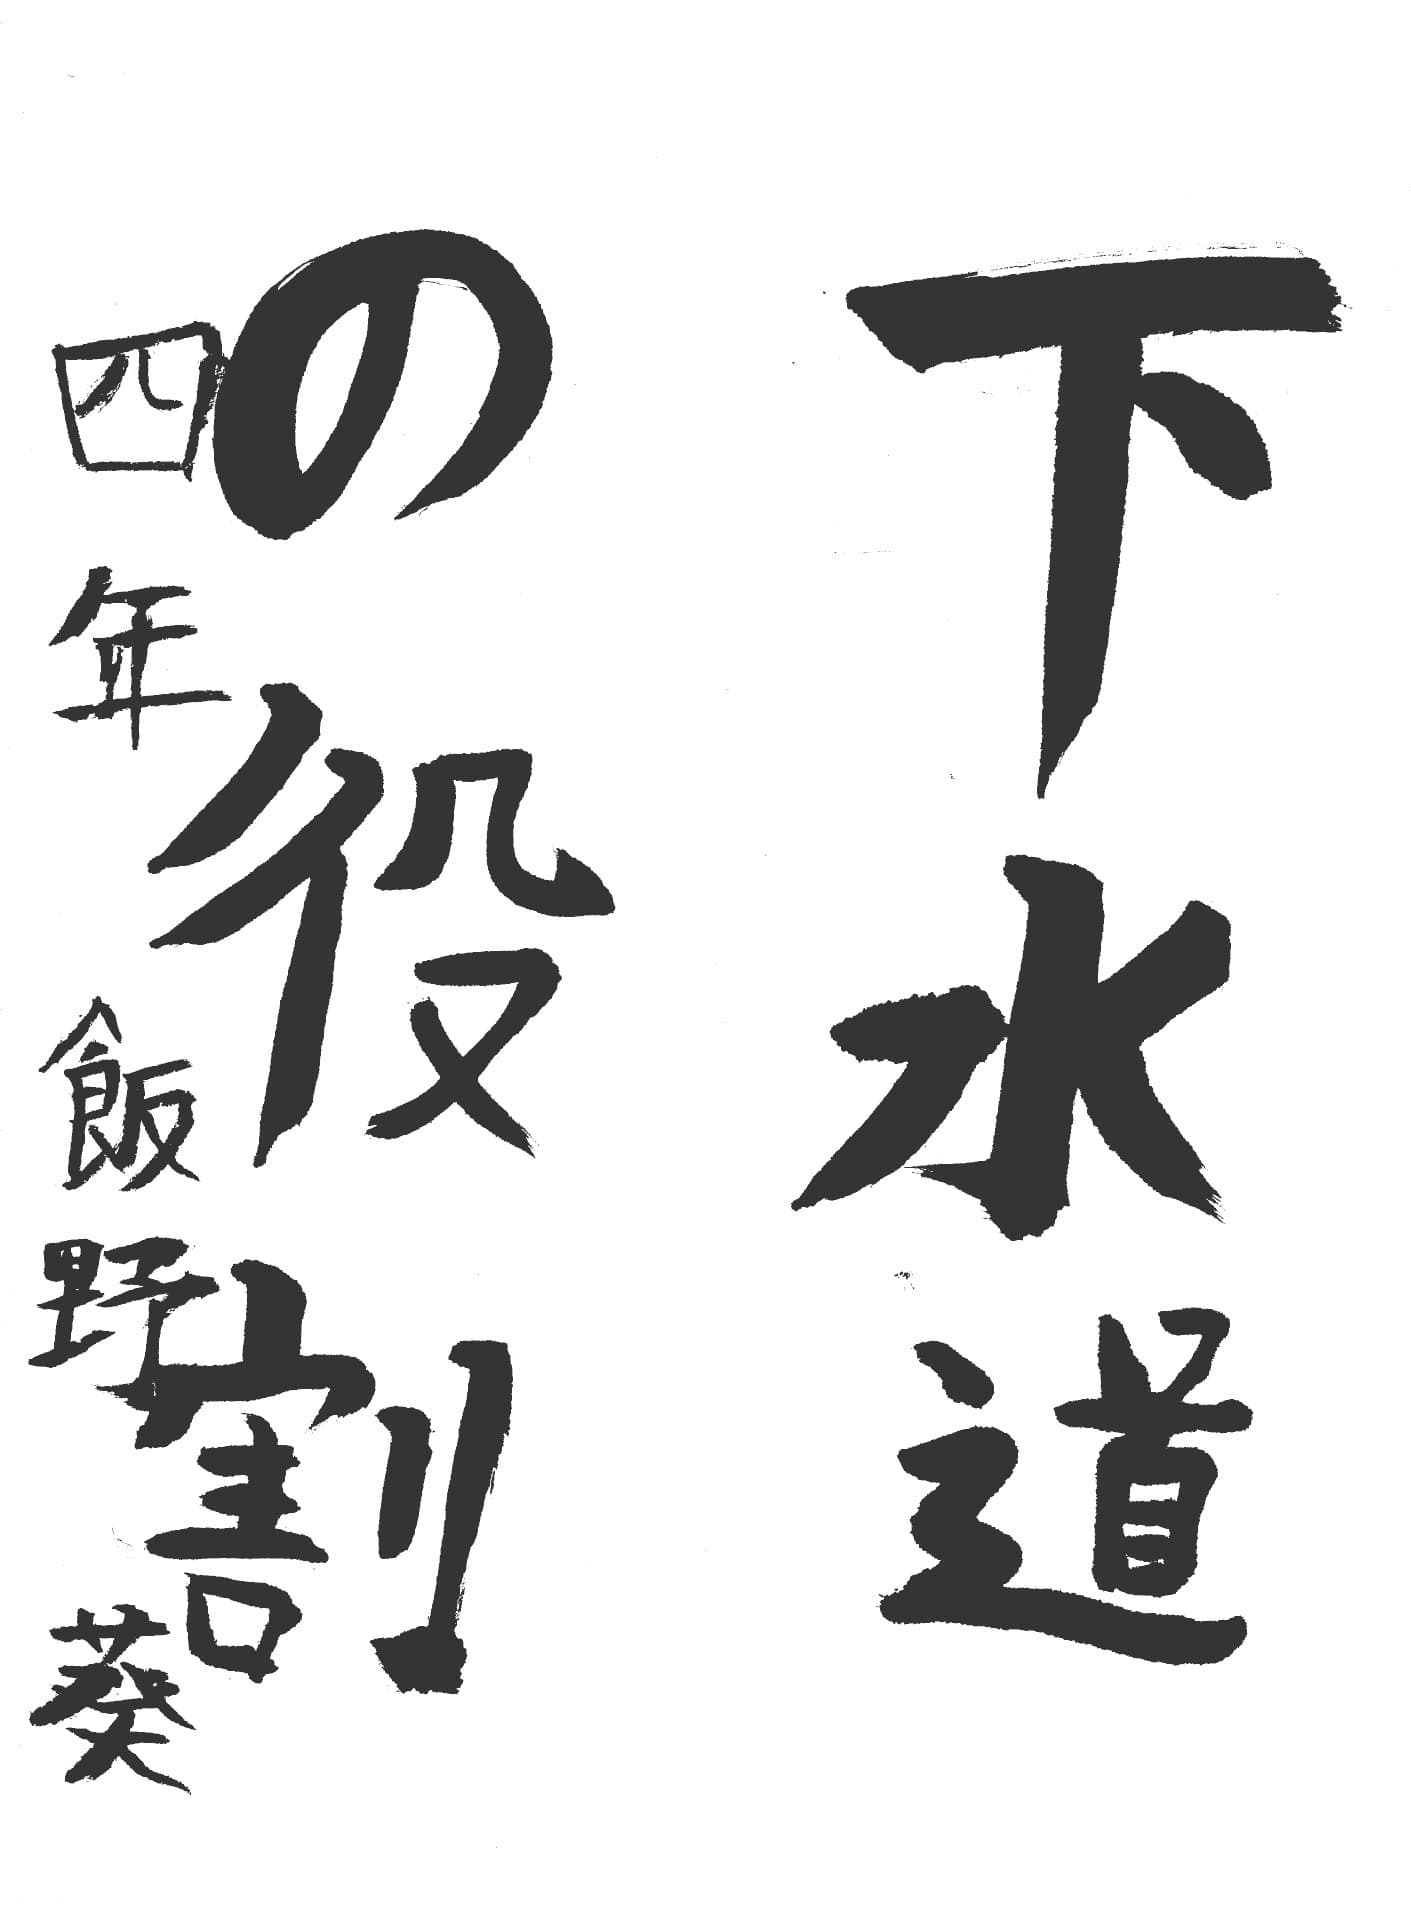 下水道
の役割
四年 飯野 葵